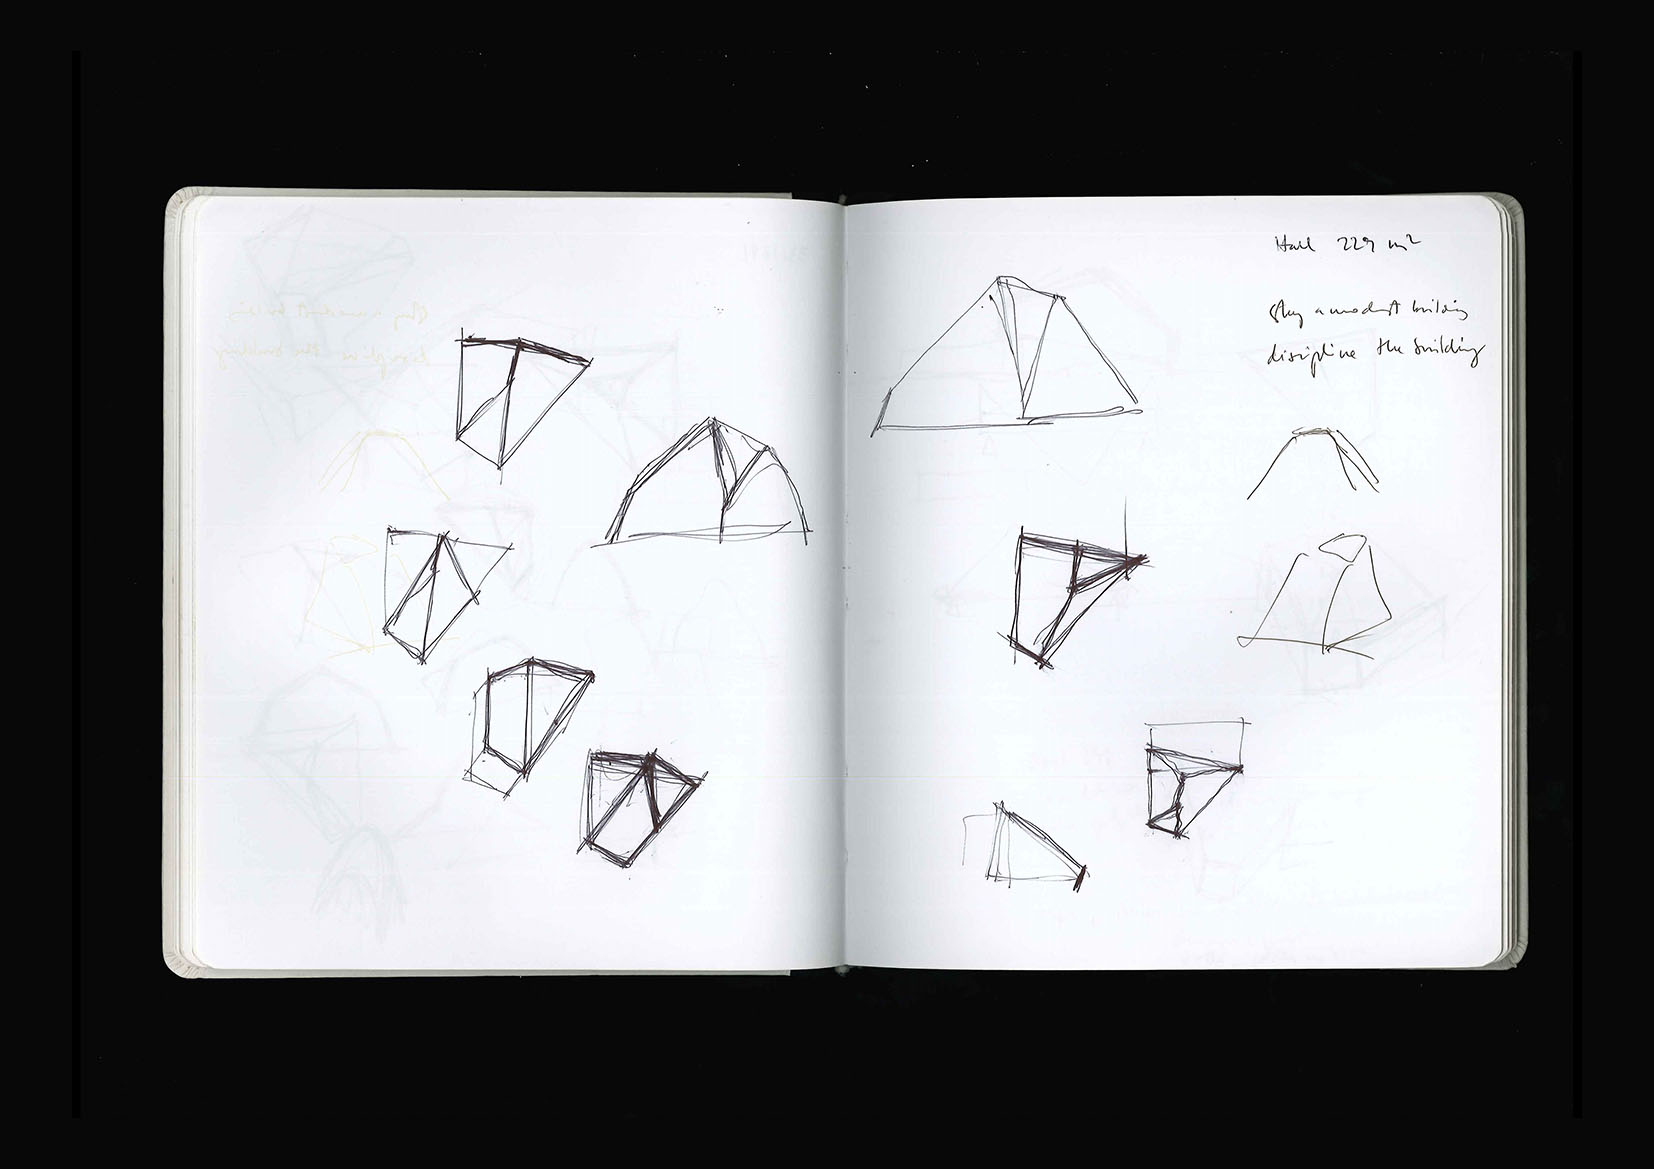 Hall 229 m²
Stay a modest building
discipline the building